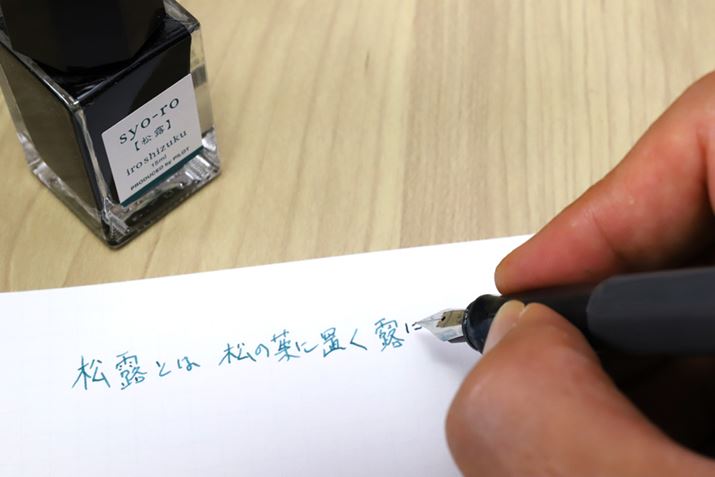 syo-ro
【松露】
iroshizuku
15ml
PRODUCED by PILOT
松露とは 松の葉に置く露に